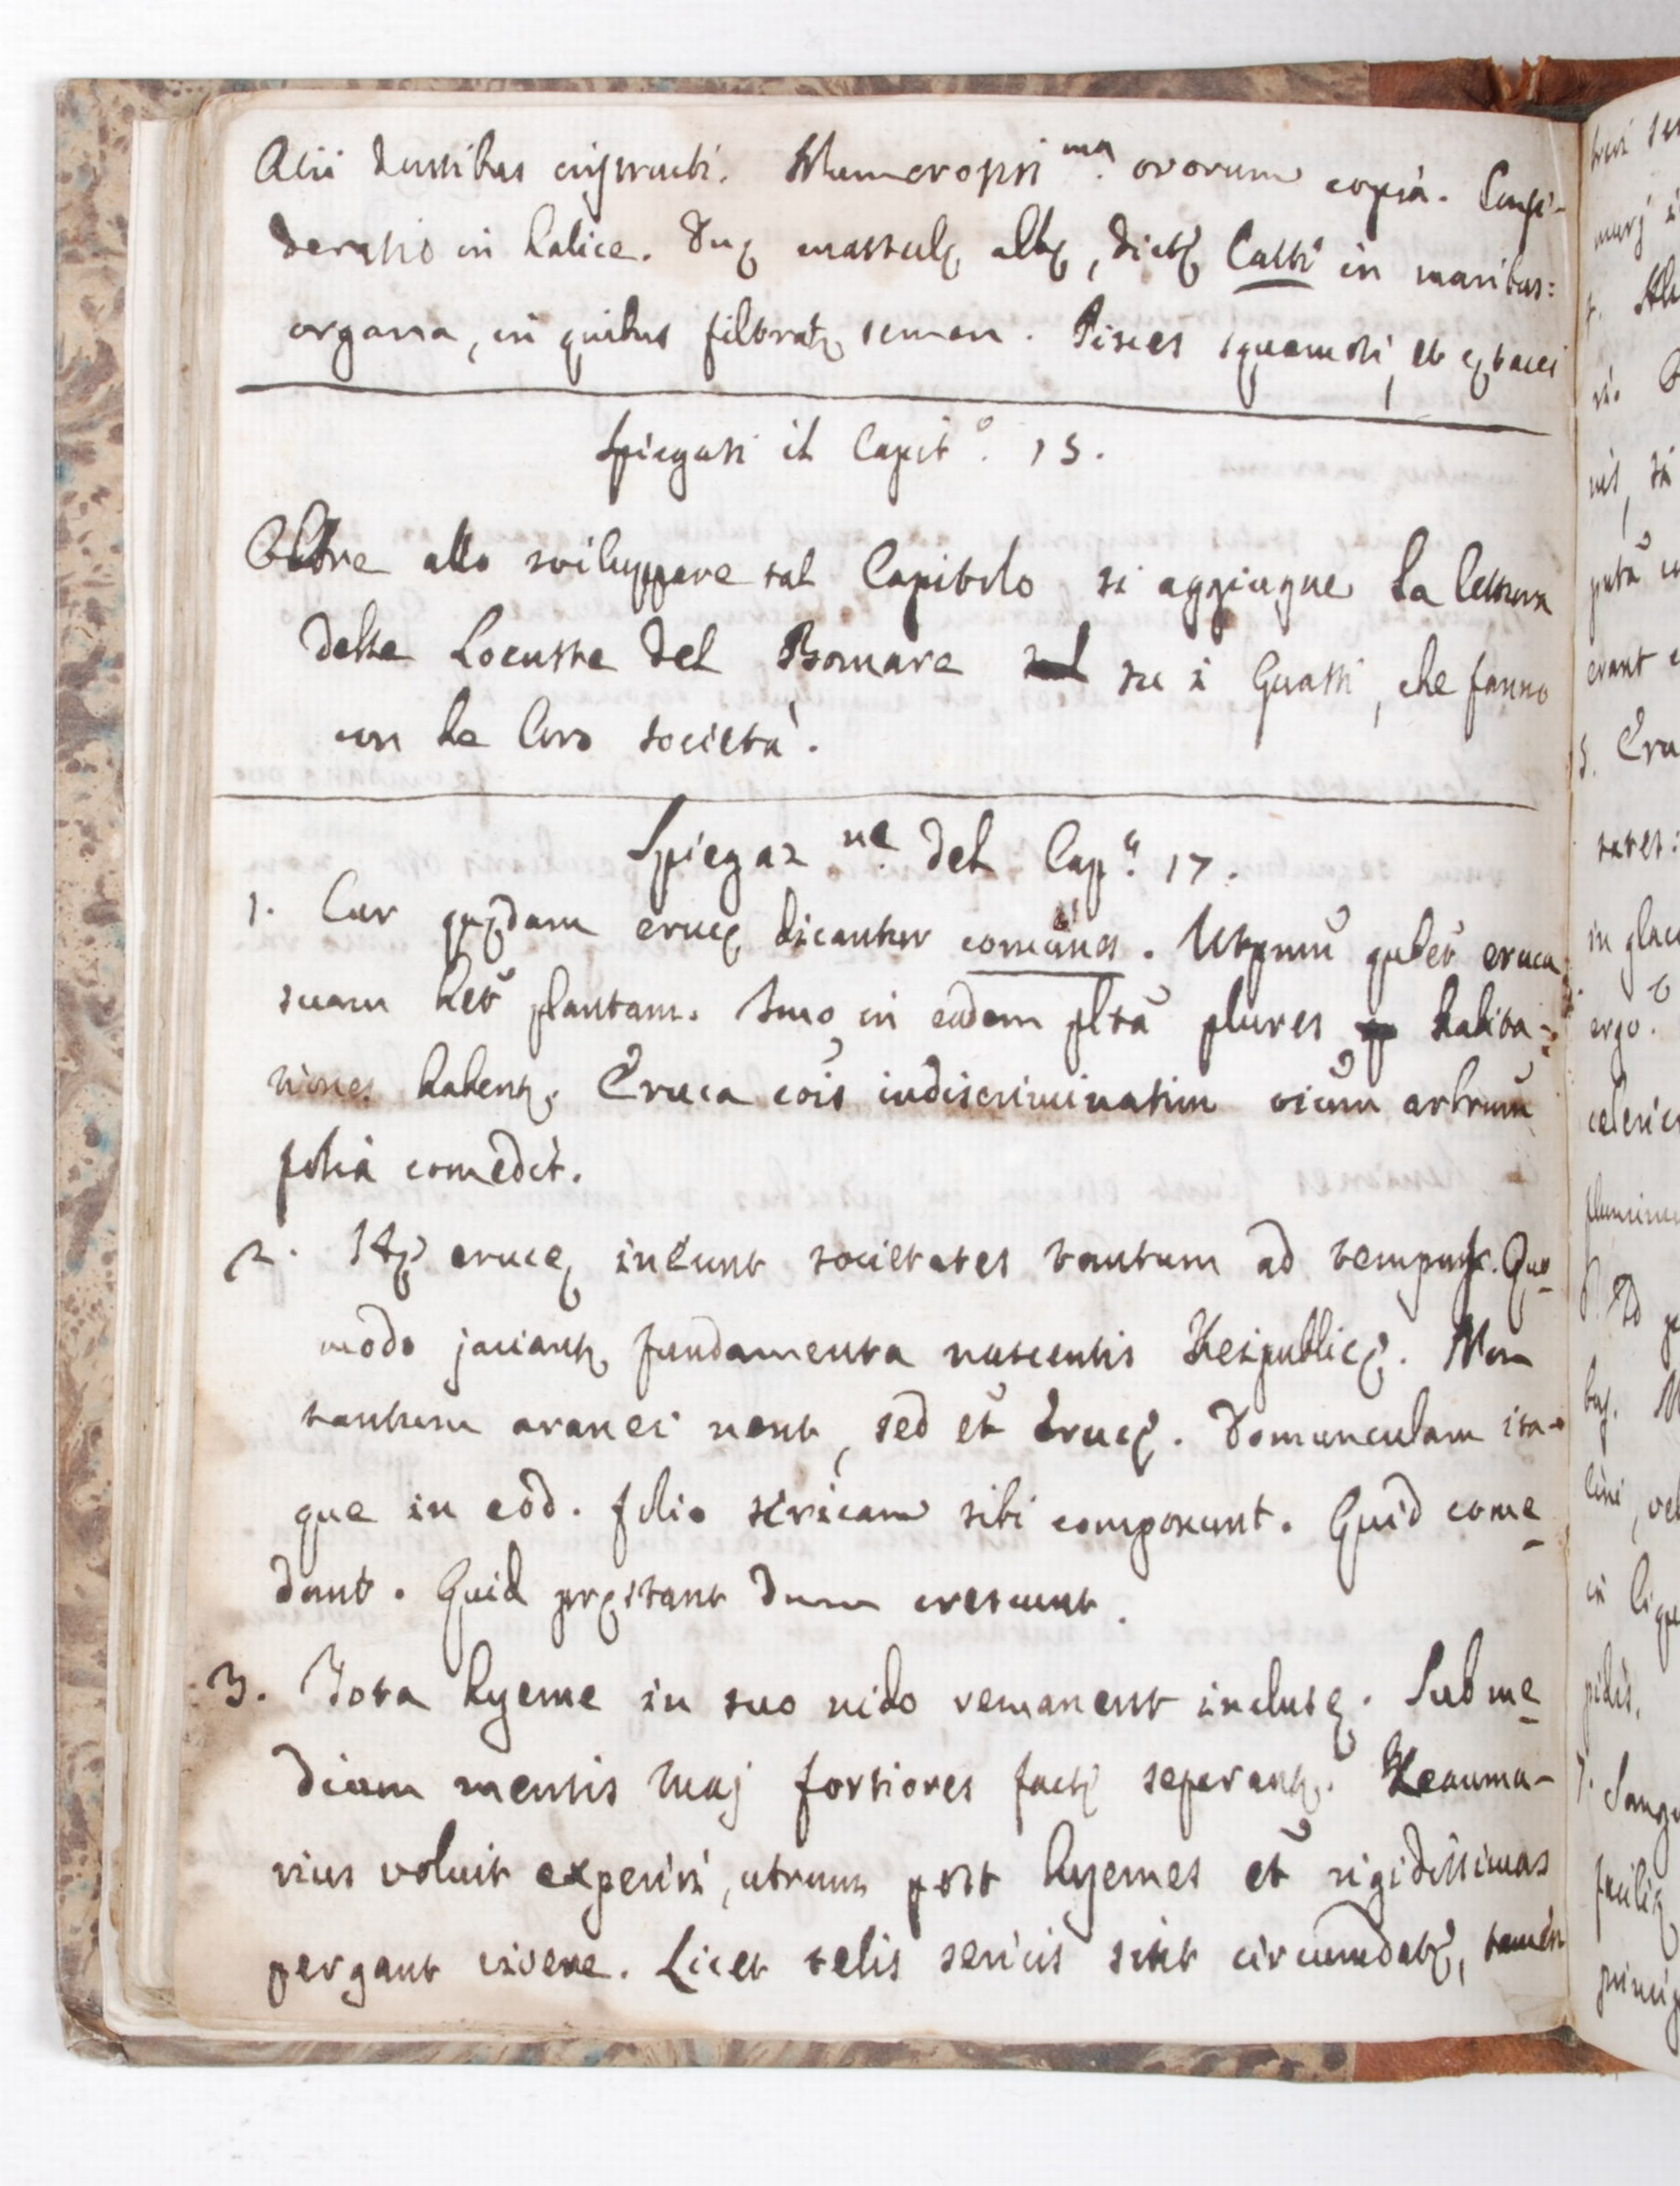 Alii dentibus instructi. Numerosissi.ma ovorum copia. Consi-
deratio in halice. Duę massulę albę, dictę Latti in maribus:
organa, in quibus filtratᶒ semen. Pisces squamosi, et cętacei
Spiegasi il Capit.º 15.
Oltre allo sviluppare tal Capitolo si aggiugne la lettura
delle Locuste del Bomare su i Guasti, che fanno
con le loro società.
Spiegaz.ne del Cap.º 17.
1. Cur quędam erucę dicantur comunes. Utpmũ qulet̃ eruca
suam het̃ plantam. Imo in eadem pltã plures habita-
tiones habent. Eruca cõis indiscriminatim oium arbrum̃
folia comedit.
2. Hę erucę ineunt societates tantum ad tempus. Quo
modo jaciantᶒ fundamenta nascentis Reipublicę. Non
tantum aranei nent, sed et̃ Erucę. Domunculam ita-
que in eõd. folio sericam sibi componunt. Quid come
dant. Quid pręstant dum crescunt.
3. Tota hyeme in suo nido remanent inclusę. Sub me
dium mensis Maj fortiores factę seperantᶒ. Reauma-
rius voluit experiri, utrum post hyemes et̃ rigidissimas
pergant vivere. Licet telis sericis sint circumdatę, tamen